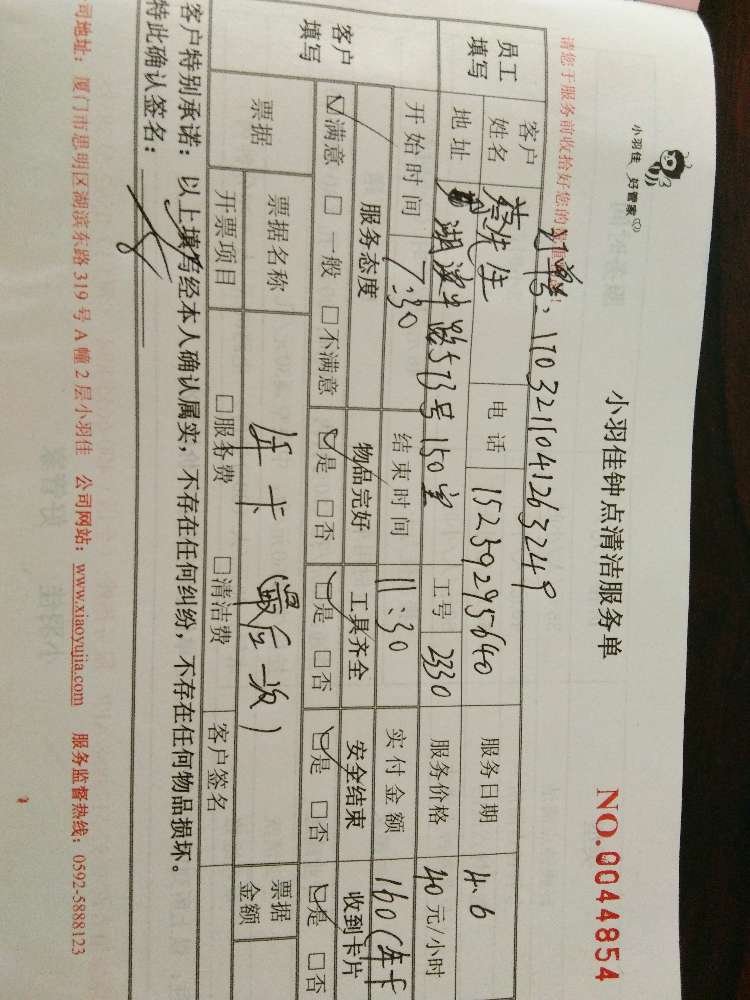 小羽佳
好管家
小羽佳钟点清洁服务单
NO.0044854
请您于服务前收拾好您的
订单号：1703211041263249
员工填写 客户姓名 蔡先生 电话 15259295640 服务日期 4.6
地址 湖滨 路573号150室 工号 2330 服务价格 40元/小时
开始时间 7:30 结束时间 11:30 实付金额 160（年卡
客户填写 服务态度 物品完好 工具齐全 安全结束 收到卡片
☑满意 □一般 □不满意 ☑是 □否 ☑是 □否 ☑是 □否 ☑是 □否
票据 票据名称 年卡（最后一次） 票据金额
开票项目 □服务费 □清洁费 客户签名
客户特别承诺：以上填写经本人确认属实，不存在任何纠纷，不存在任何物品损坏。
特此确认签名：
司地址：厦门市思明区湖滨东路319号A幢2层小羽佳 公司网站：www.xiaoyujia.com 服务监督热线：0592-5888123